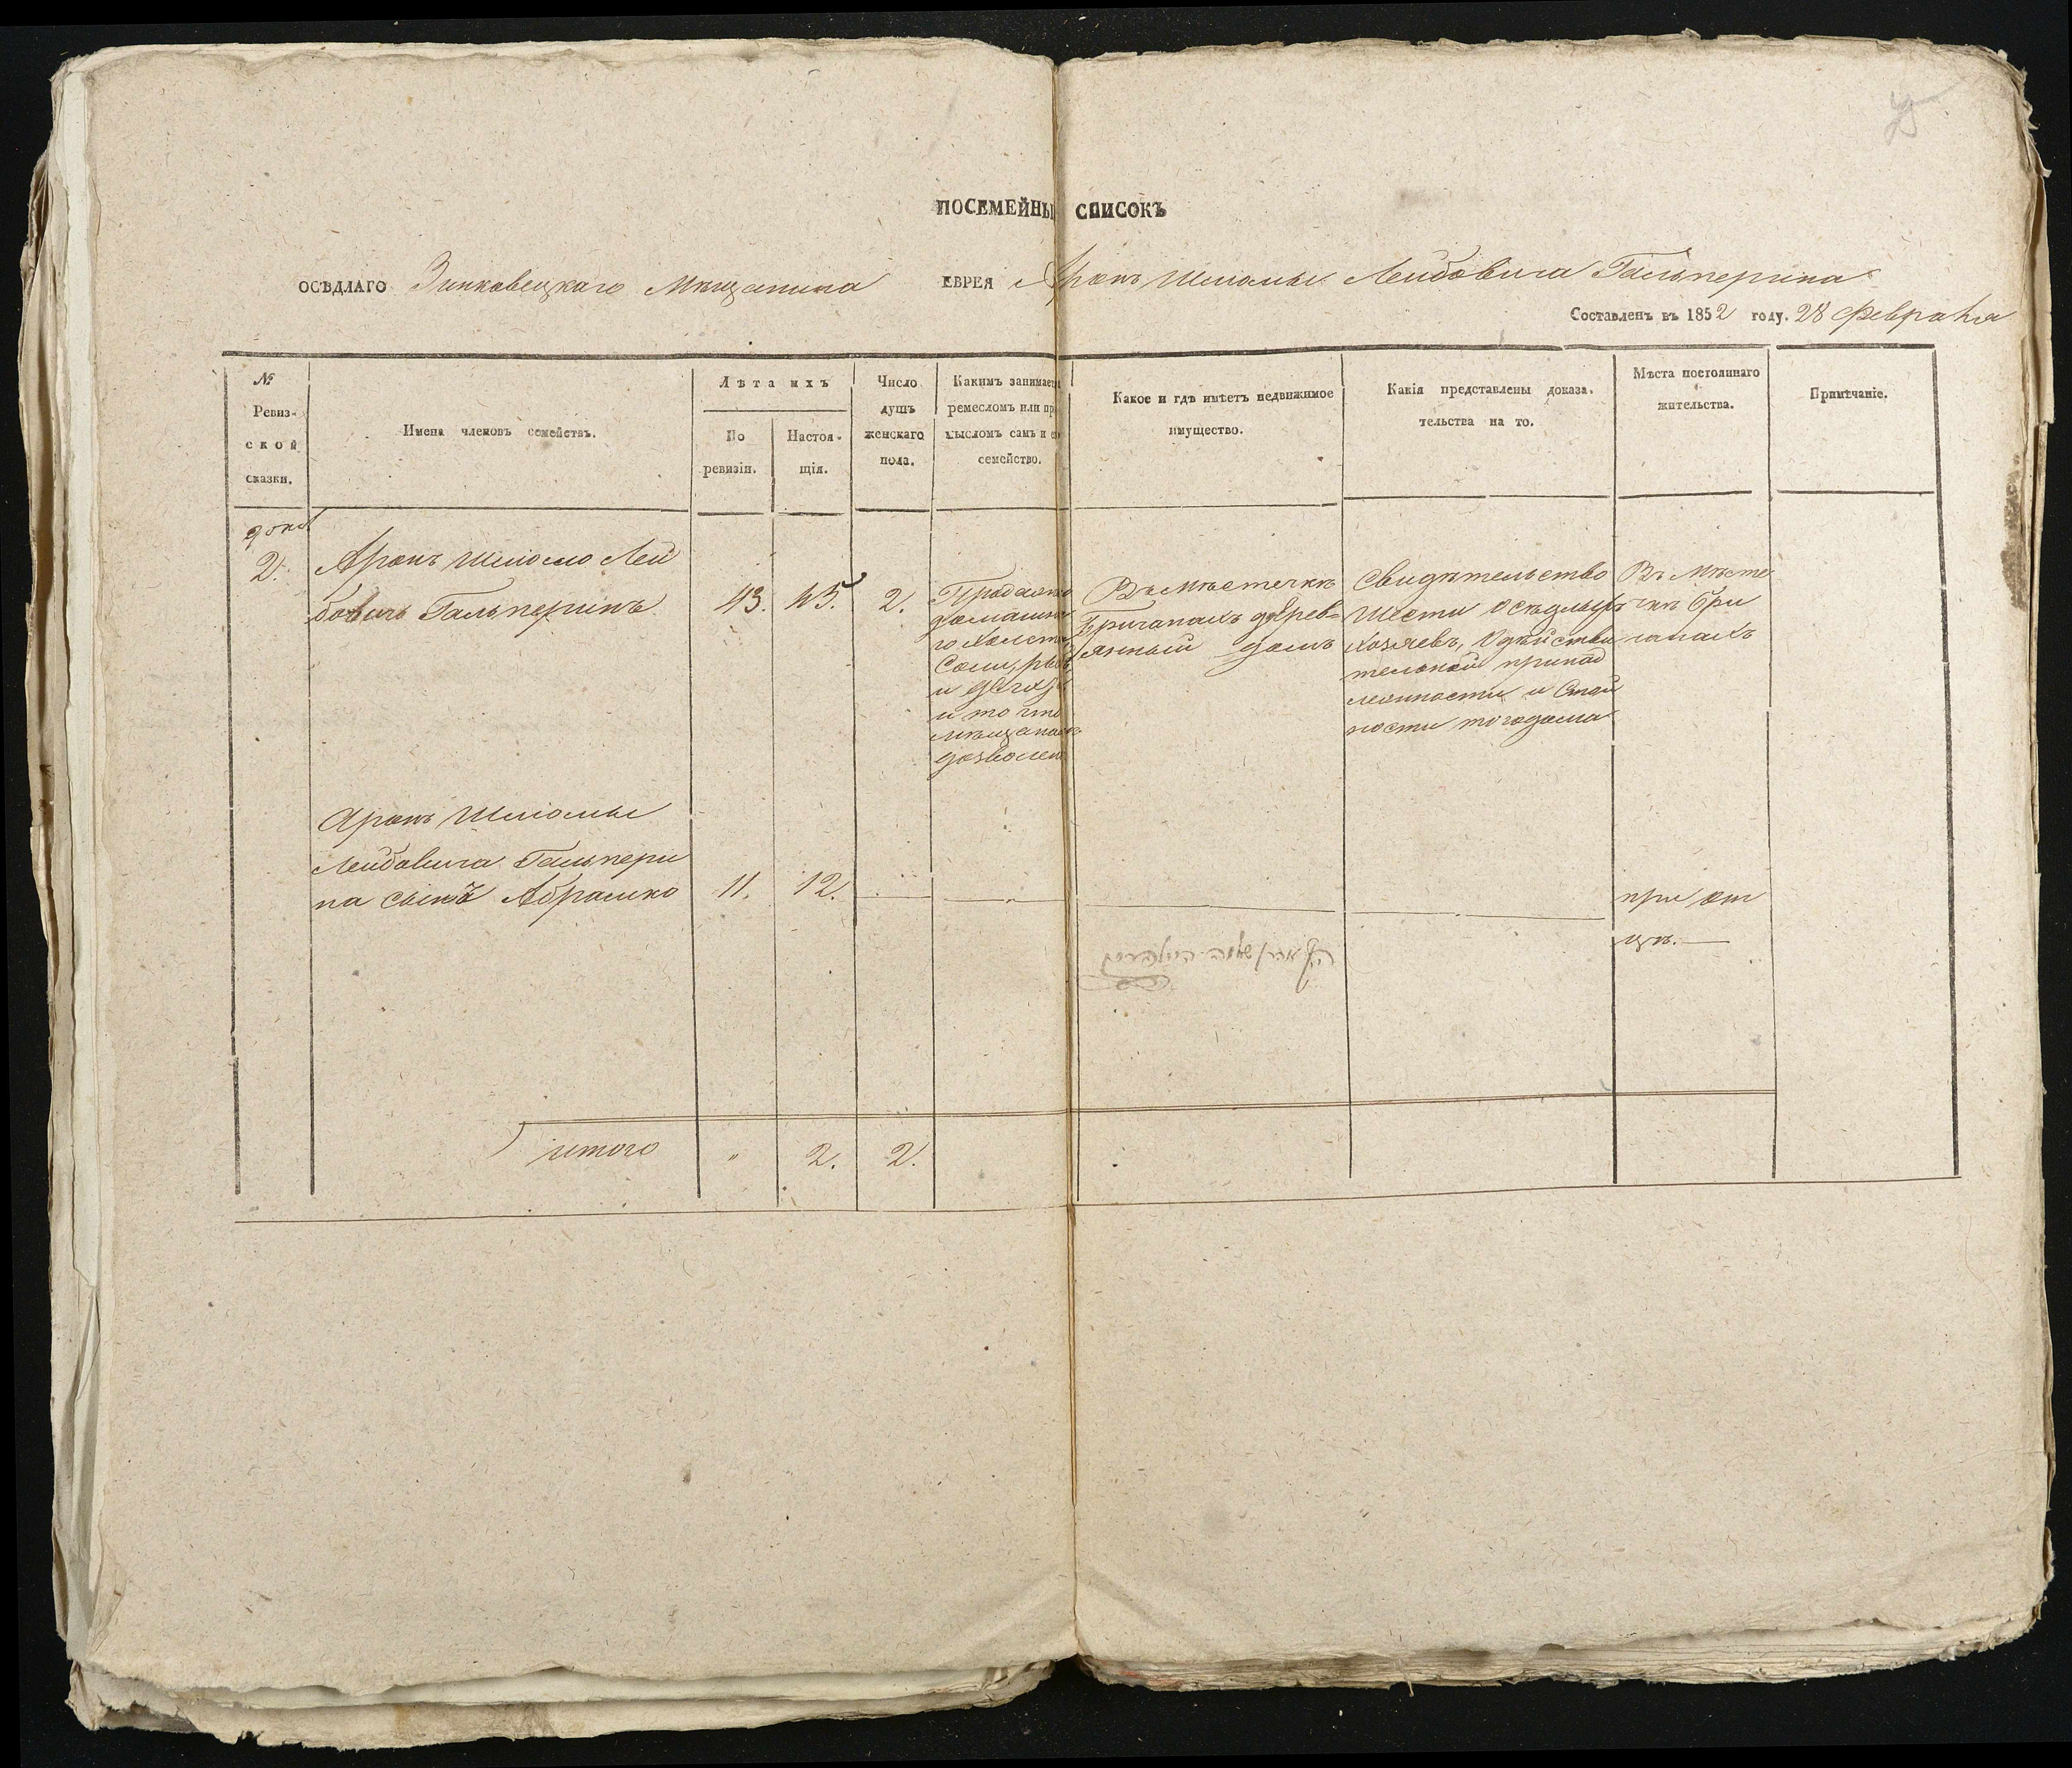 ПОСЕМЕЙНЫ СПИСОКЪ
ОСѢДЛАГО Зинковецкаго Мѣщанина ЕВРЕЯ Аронъ Шлиомы Лейбовича Гальперина
Составленъ въ 1852 году. 28 февраля
№ Ревиз-
ской
сказки.
Имена членовъ семействъ.
Лѣта ихъ
По
ревизіи.
Настоя-
щія.
Число
душъ
женскаго
пола.
Какимъ занимаетъ
ремесломъ или пр
мысломъ самъ и е
семейство.
Какое и гдѣ имѣетъ недвижимое
имущество.
Какія представлены доказа-
тельства на то.
Мѣста постояннаго
жительства.
Примѣчаніе.
2.
Аронъ Шлиомо Лей
бовичъ Гальперинъ
43.
45.
2.
Продажею
домашня
го холста
Соли, рыб
и дегтя
и то что
мѣщанамъ
дозволен
Въ Мѣстечкѣ
Бричанахъ дерев=
янный домъ
Свидѣтельство
шести осѣдлыхъ
хозяевъ, о дѣйстви
тельной принад
лежности и Стои
мости того дома
Въ Мѣсте
чкѣ Бри
чанахъ
Аронъ Шлиомы
Лейбовича Гальпери
на сынъ Абрамко
11.
12.
при от
цѣ.
אהרן שלמה היילפערין
итого
"
2.
2.